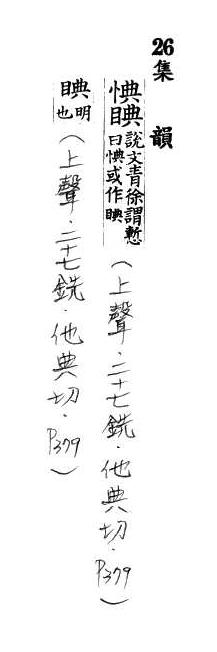 26集 韻
㥏晪說文青徐謂慙曰㥏或作晪(上聲·二十七銑·他典切·P379)
晪明也(上聲·二十七銑·他典切·P379)